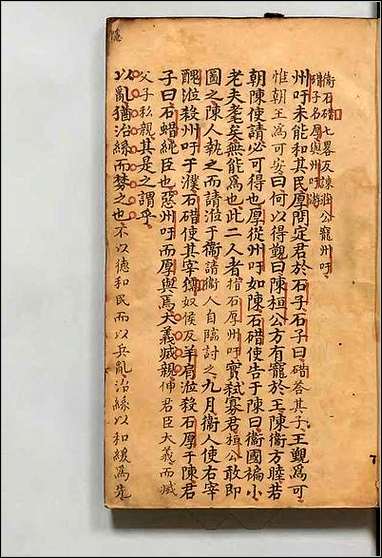 衞石碏
州吁
碏子名厚與州吁游
州吁未能和其民厚問定君於石子石子曰碏荅其子王覲為可
惟朝王為可安曰何以得覲曰陳桓公方有寵於王陳衛方睦若
朝陳使請必可得也厚從州吁如陳石碏使告于陳曰衛國褊小
老夫耄矣無能為也此二人者指石厚州吁實弑寡君桓公敢即
圖之陳人執之而請涖于衛請衛人自臨討之九月衛人使右宰
醜涖殺州吁于濮石碏使其宰獳奴侯反羊肩涖殺石厚于陳君
子曰石碏純臣也惡州吁而厚與焉大義滅親伸君臣大義而滅
父子私親其是之謂乎
以亂猶治絲而棼之也不以德和民而以兵亂治絲以和緩為先